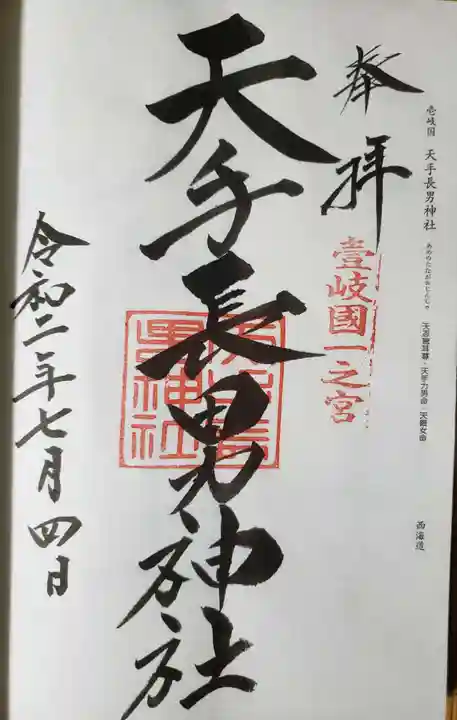 壱岐国 天手長男神社 あめのたながおじんじゃ 天忍穂耳尊・天手力男命・天鈿女命 西海道
奉拝
壹岐國一之宮
天手長男神社
令和二年七月四日